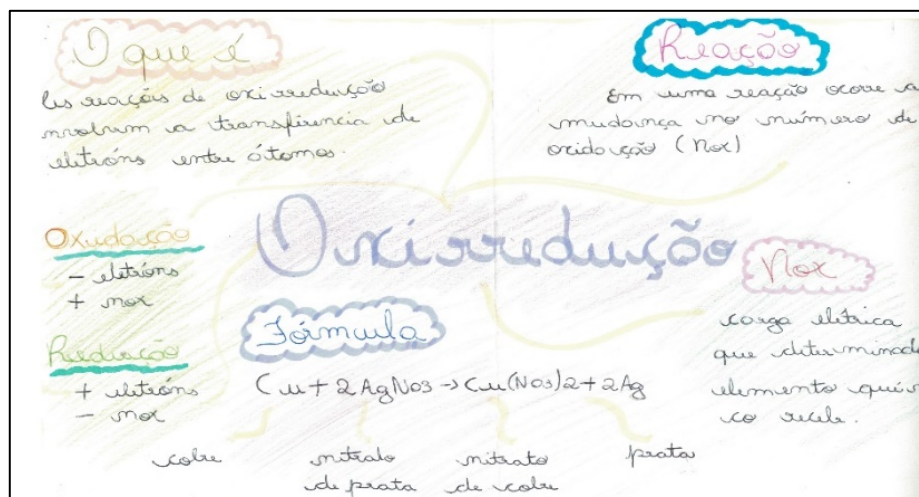 O que é
As reações de oxirredução
nvolvem a transfêrencia de
eletróns entre átomos.
Reação
Em uma reação ocorre a
mudança no número de
oxidação (Nox)
Oxirredução
Oxudação
- eletróns
+ nox
Redução
+ eletróns
- nox
Fórmula
Cu + 2AgNO3 → Cu(NO3)2 + 2Ag
cobre
nitrato
de prata
nitrato
de cobre
prata
Nox
carga elétrica
que determinad
elemento quím
co recebe.